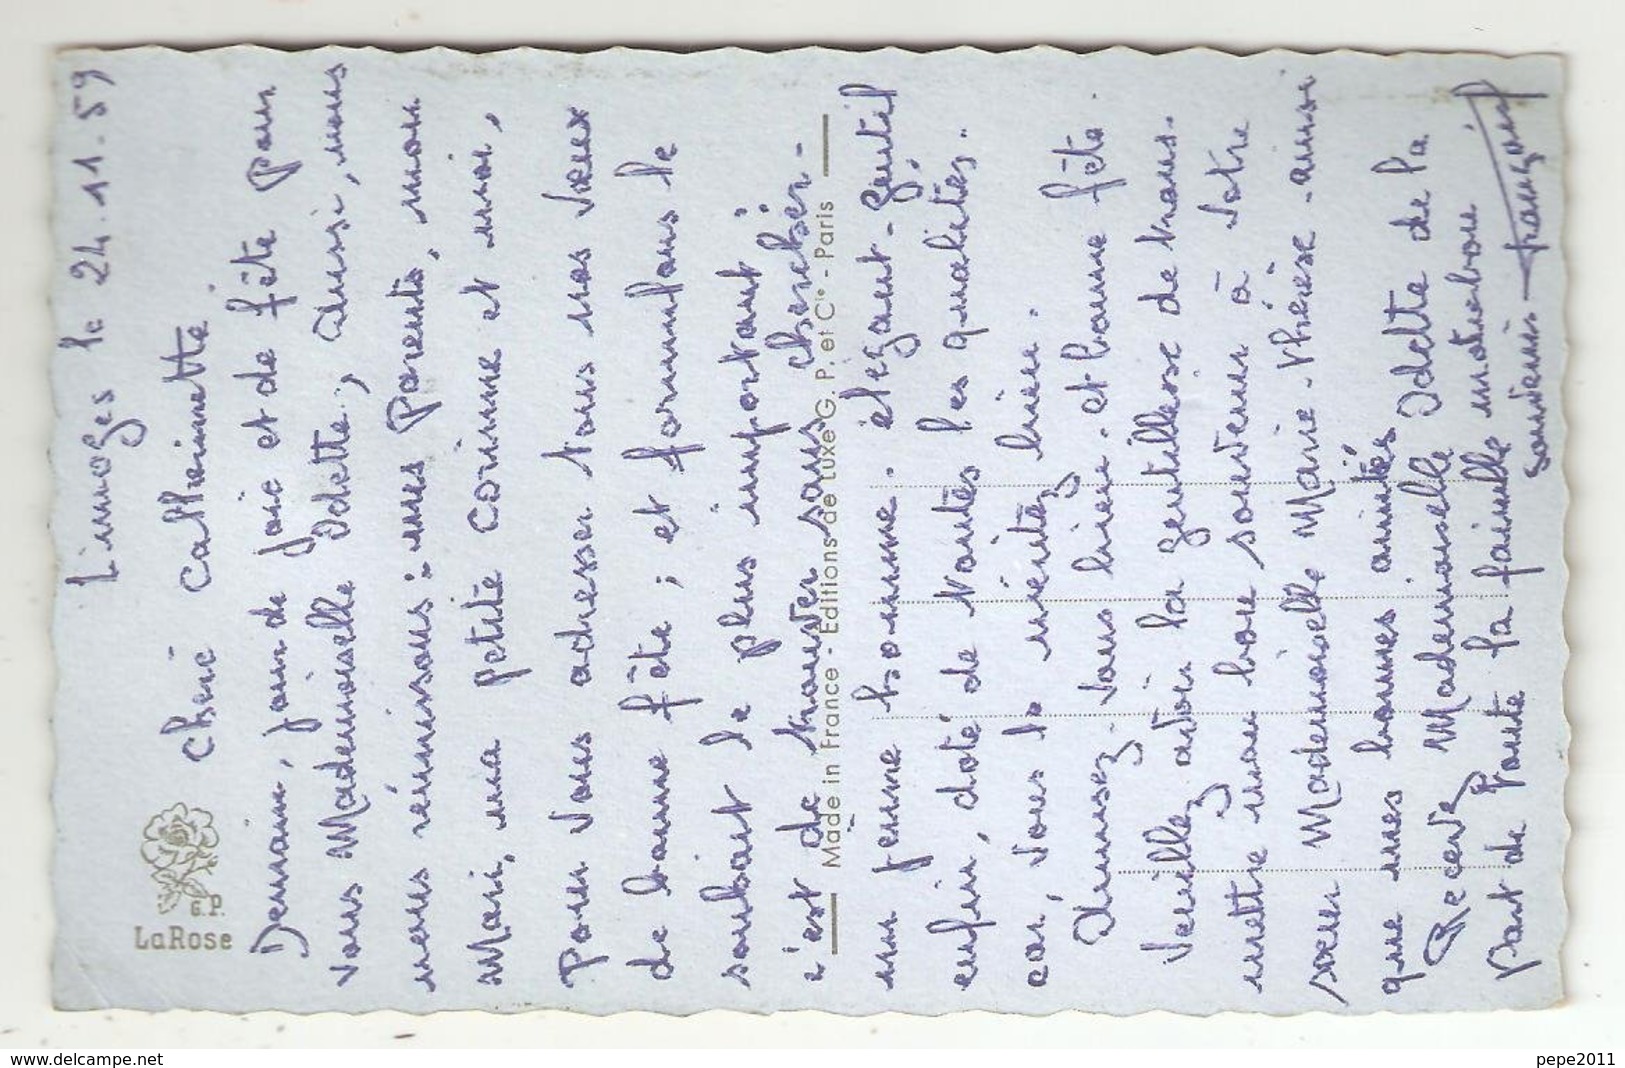 Limoges le 24.11.59
Chère Catherinette
Demain, jour de joie et de fête pour
vous Mademoiselle Odette, aussi, nous
nous réunissons : mes Parents, mon
Mari, ma petite Corinne et moi,
Pour vous adresser tous nos vœux
de bonne fête ; et formulons le
souhait le plus important :
c'est de trouver sans chercher -
un jeune homme. élégant - gentil
enfin, doté de toutes les qualités.
car, vous le méritez bien.
Amusez-vous bien. et bonne fête.
Veuillez avoir la gentillesse de trans-
mettre mon bon souvenir à votre
sœur Mademoiselle Marie-Thérèse - ainsi
que mes bonnes amitiés
Recevez Mademoiselle Odette de la
Part de toute la famille
souvenir
LaRose
G.P.
Made in France - Editions de Luxe G. P. et Cie - Paris
www.delcampe.net
pepe2011